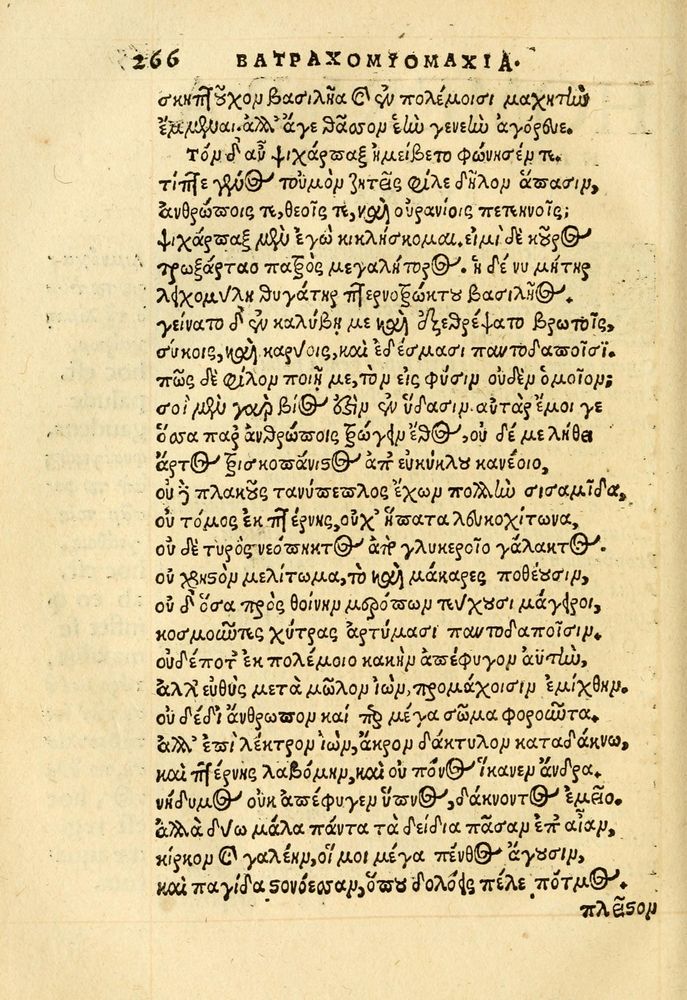 266 ΒΑΤΡΑΧΟΜΥΟΜΑΧΙΑ.
σκηπτοῦχον βασιλῆα καὶ ἐν πολέμοισι μαχητὴν
ἔμμεναι. ἀλλ' ἄγε θᾶσσον ἑὴν γενεὴν ἀγόρευε.
Τὸν δ' αὖ ψιχάρπαξ ἠμείβετο φώνησέν τε.
τίπτε γένος τοὐμὸν ζητεῖς φίλε δῆλον ἅπασιν,
ἀνθρώποις τε, θεοῖς τε, καὶ οὐρανίοις πετεηνοῖς;
ψιχάρπαξ μὲν ἐγὼ κικλήσκομαι. εἰμὶ δὲ κοῦρος
τρωξάρταο πατρὸς μεγαλήτορος. ἡ δέ νυ μήτηρ
λειχομύλη θυγάτηρ πτερνοτρώκτου βασιλῆος.
γείνατο δ' ἐν καλύβῃ με καὶ ἐξεθρέψατο βρωτοῖς,
σύκοις, καὶ καρύοις, καὶ ἐδέσμασι παντοδαποῖσι.
πῶς δὲ φίλον ποιῇ με, τὸν εἰς φύσιν οὐδὲν ὁμοῖον;
σοὶ μὲν γὰρ βίος ἐστὶν ἐν ὕδασιν. αὐτὰρ ἔμοι γε
ὅσσα παρ' ἀνθρώποις τρώγειν ἔθος, οὐ δέ με λήθει
ἄρτος τρισκοπάνιστος ἀπ' εὐκύκλου κανέοιο,
οὐ δὲ πλακοῦς τανύπεπλος ἔχων πολλὴν σισαμῖδα,
οὐ τόμος ἐκ πτέρνης, οὐχ' ἥπατα λευκοχίτωνα,
οὐ δὲ τυρὸς νεόπηκτος ἀπὸ γλυκεροῖο γάλακτος.
οὐ χρηστὸν μελίτωμα, τὸ καὶ μάκαρες ποθέουσιν,
οὐ δ' ὅσα πρὸς θοίνην μερόπων τεύχουσι μάγειροι,
κοσμοῦντες χύτρας ἀρτύμασι παντοδαποῖσιν.
οὐδέποτ' ἐκ πολέμοιο κακὴν ἀπέφυγον ἀϋτὴν,
ἀλλ' εὐθὺς μετὰ μῶλον ἰὼν, προμάχοισιν ἐμίχθην.
οὐ δέδι' ἄνθρωπον καί περ μέγα σῶμα φοροῦντα.
ἀλλ' ἐπὶ λέκτρον ἰὼν, ἄκρον δάκτυλον καταδάκνω,
καὶ πτέρνης λαβόμην, καὶ οὐ πόνος ἵκανεν ἄνδρα.
νήδυμος οὐκ ἀπέφυγεν ὕπνος, δάκνοντος ἐμεῖο.
ἀλλὰ δύω μάλα πάντα τὰ δείδια πᾶσαν ἐπ' αἶαν,
κίρκον καὶ γαλέην, οἵ μοι μέγα πένθος ἄγουσιν,
καὶ παγίδα στονόεσσαν, ὅπου δολόεις πέλε πότμος.
πλεῖστον